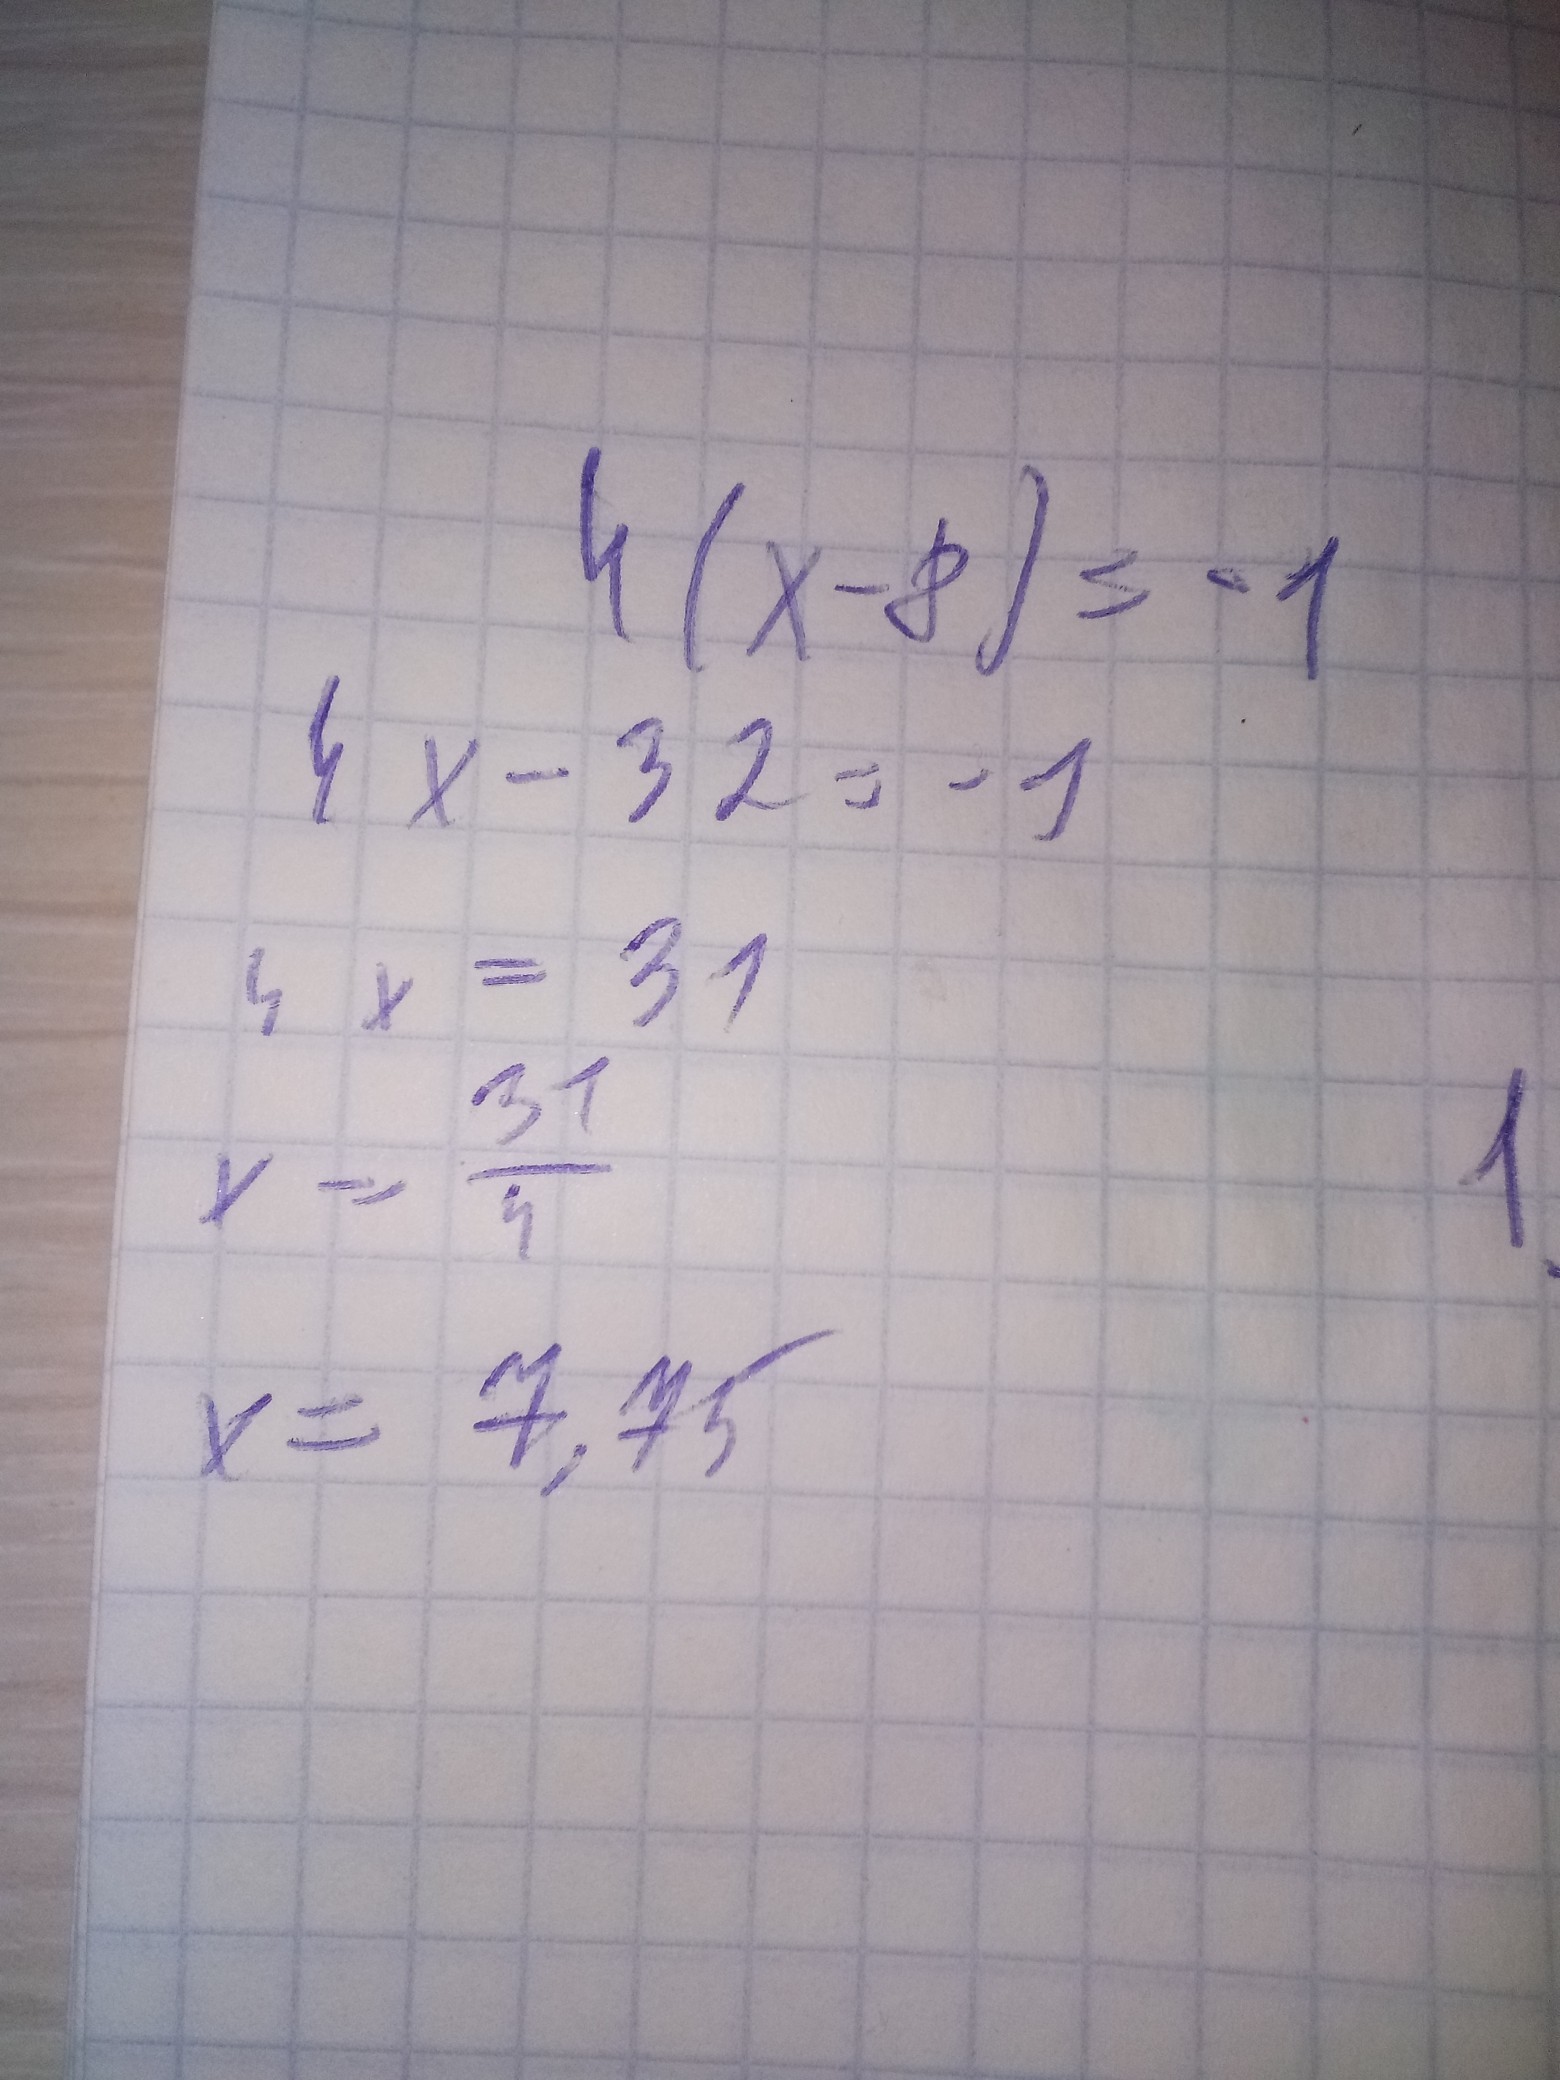 4(x-8)=-1
4x-32=-1
4x=31
x=31/4
1
x=7,75